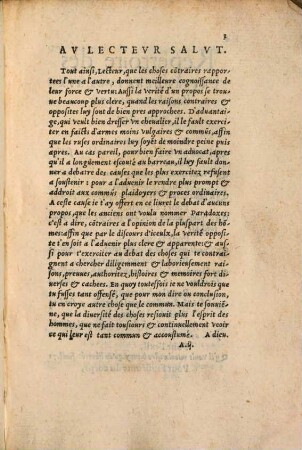 3
AV LECTEVR SALVT.
Tout ainsi, Lecteur, que les choses cõtraires rappor-
tees l'vne a l'autre, donnent meilleure cognoissance de
leur force & vertu: Aussi la verité d'un propos se trou-
ne beaucoup plus clere, quand les raisons contraires &
opposites luy sont de bien pres approchees. D'aduanta-
ge, qui veult bien dresser vn cheualier, il le fault exerci-
ter en faicts d'armes moins vulgaires & cõmũs, affin
que les ruses ordinaires luy soyẽt de moindre peine puis a-
pres. Au cas pareil, pour bien faire vn aduocat, apres
qu'il a longuement escouté au barreau, il luy fault don-
ner a debatre des causes que les plus exercitez refusent
a soustenir: pour a l'aduenir le rendre plus prompt &
addroit aux commũs plaidoyers & proces ordinaires.
A ceste cause ie t'ay offert en ce liuret le debat d'aucuns
propos, que les anciens ont voulu nommer Paradoxes:
c'est a dire, cõtraires a l'opinion de la pluspart des hõ-
mes: affin que par le discours d'iceulx, la verité opposi-
te t'en soit a l'aduenir plus clere & apparente: & aussi
pour t'exerciter au debat des choses qui te contraig-
nent a chercher diligemment & laborieusement rai-
sons, preuues, authoritez, histoires & memoires fort di-
uerses & cachees. En quoy toutesfois ie ne vouldrois que
tu fusses tant offensé, que pour mon dire ou conclusion,
tu en croye autre chose que le commun. Mais te souuiẽ-
ne, que la diuersité des choses resiouit plus l'esprit des
hommes, que ne fait tousiours & continuellement veoir
ce qui leur est tant commun & accoustumé. A dieu.
A.ij.